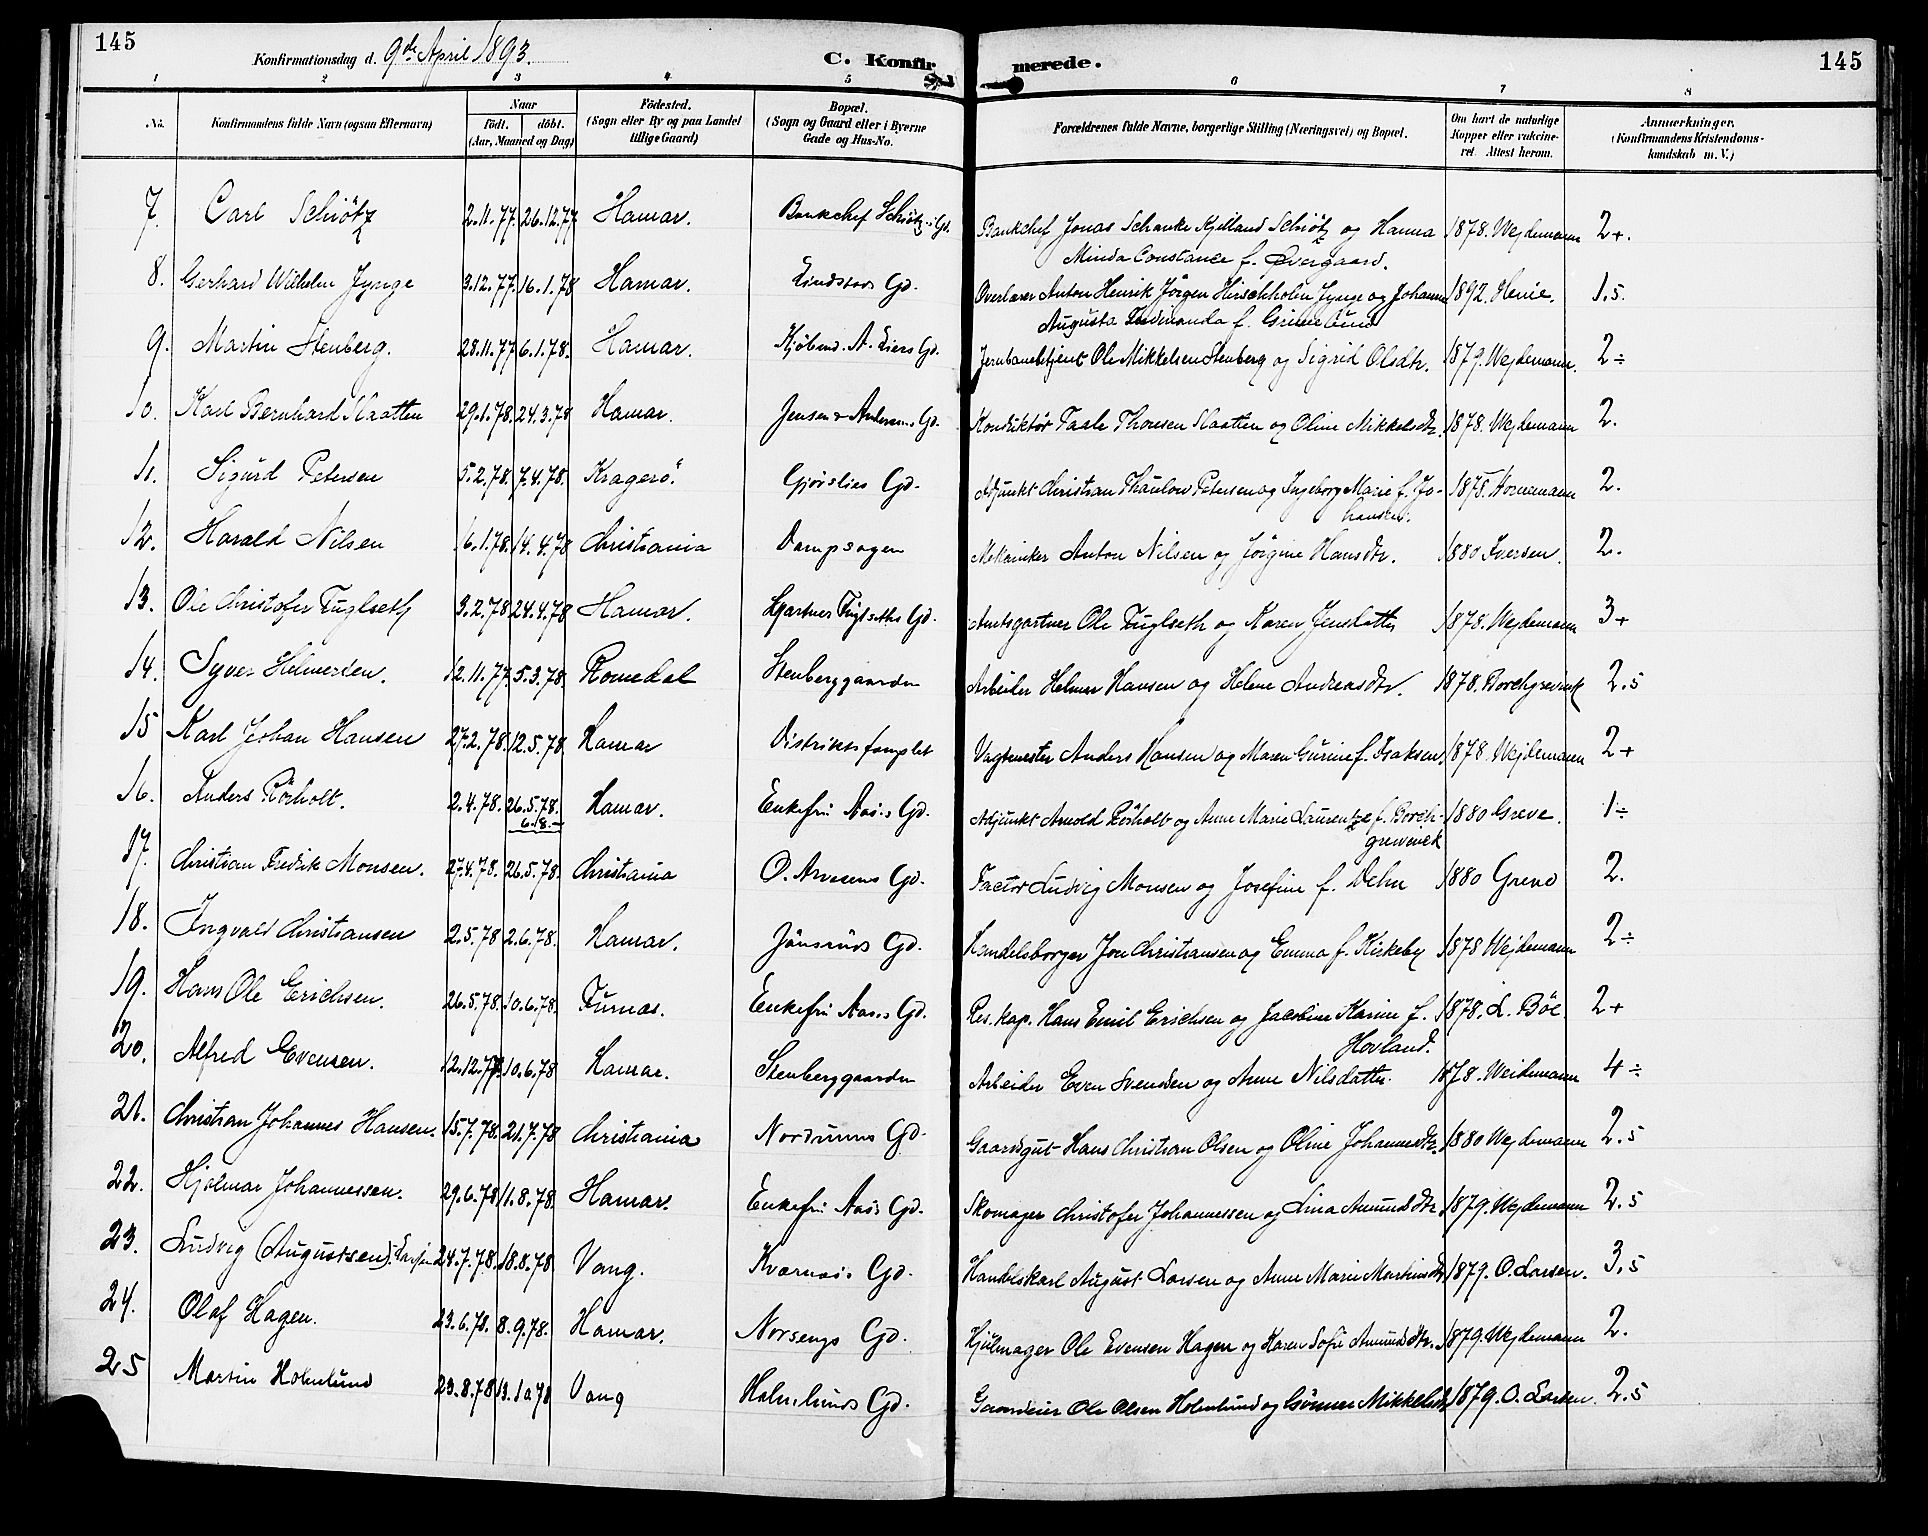 145
Konfirmationsdag d. 9de April 1893.
C. Konfirmerede.
145
1 2 3 4 5 6 7 8
No.
Konfirmandens fulde Navn (ogsaa Efternavn)
Naar
födt. döbt.
(Aar, Maaned og Dag)
Födested.
(Sogn eller By og paa Landet
tillige Gaard)
Bopæl.
(Sogn og Gaard eller i Byerne
Gade og Hus-No.
Forældrenes fulde Navne, borgerlige Stilling (Næringsvei) og Bopæl.
Om havt de naturlige
Kopper eller vakcine-
ret. Attest herom.
Anmærkninger.
(Konfirmandens Kristendoms-
kundskab m. V.)
7. Carl Schiötz 2.11.77. 26.12.77 Hamar. Bankchef Schiötz's Gd. Bankchef Jonas Schanke Kjelland Schiötz og Hanna 1878. Wejdemann 2+.
Minda Constance f. Overgaard.
8. Gerhard Wilhelm Jynge 3.12.77. 16.1.78 Hamar. Lindstads Gd. Overlærer Anton Henrik Jörgen Hirschholm Jynge og Johanne 1892. Henie. 1.5.
Augusta Ferdinanda f. Grimelund
9. Martin Stenberg. 28.11.77 6.1.78. Hamar. Kjøbmd. A. Liers Gd. Jernbanebetjent Ole Mikkelsen Stenberg og Sigrid Olsdtr. 1879. Wejdemann. 2÷
10. Karl Bernhard Slaatten 29.1.78. 24.3.78 Hamar. Jensen & Andersens Gd. Konduktør Taale Thomsen Slaatten og Oline Mikkelsdtr. 1878. Wejdemann 2.
11. Sigurd Petersen 5.2.78. 7.4.78. Kragerö. Gjörslies Gd. Adjunkt Christian Thaulow Petersen og Ingeborg Marie f. Jo- 1878. Hornemann 2.
hansen.
12. Harald Nilsen 16.1.78. 14.4.78 Christiania Dampsagen Mekaniker Anton Nilsen og Jörgine Hansdtr. 1880 Iversen. 2.
13. Ole Christofer Fuglseth 3.2.78 24.4.78 Hamar. Gartner Fuglseths Gd. Amtsgartner Ole Fuglseth og Karen Jensdatter 1878. Wejdemann 3+
14. Syver Helmersen. 12.11.77. 5.3.78. Romedal Stenberggaarden Arbeider Helmer Hansen og Helene Andreasdtr. 1878. Borchgrevink 2.5
15 Karl Johan Hansen 27.2.78. 12.5.78. Hamar Distriktsfængslet Vagtmester Anders Hansen og Maren Gurine f. Isaksen. 1878. Wejdemann 2+
16. Anders Rörholt. 2.4.78. 26.5.78. Hamar. Enkefru Aas's Gd. Adjunkt Arnold Rörholt og Anne Marie Laurentze f. Borch- 1880 Greve. 1÷
6.18.— grevinck
17. Christian Fredrik Monsen. 27.4.78. 26.5.78. Christiania O. Arvesens Gd. Factor Ludvig Monsen og Josefine f. Dehn 1880 Greve 2.
18. Ingvald Christiansen 2.5.78 2.6.78. Hamar. Jönsruds Gd. Handelsborger Jon Christiansen og Emma f. Kirkeby 1878 Wejdemann 2÷
19. Hans Ole Erichsen. 26.5.78. 10.6.78. Furnæs. Enkefru Aas's Gd. Res. kap. Hans Emil Erichsen og Jacobine Karine f. 1878. L. Böe 2+
Hovland.
20. Alfred Evensen. 12.12.77. 10.6.78 Hamar. Stenberggaarden Arbeider Even Svendsen og Anne Nilsdatter. 1878. Weidemann 4÷
21. Christian Johannes Hansen. 15.7.78. 21.7.78 Christiania Nordrums Gd. Gaardsgut Hans Christian Olsen og Oline Johannesdtr. 1880 Wejdemann 2.5
22. Hjalmar Johannessen. 29.6.78 11.8.78. Hamar. Enkefru Aas's Gd. Skomager Christofer Johannessen og Lina Amundsdtr. 1879. Wejdemann 2.5
23. Ludvig (Augustsen). Larsen 24.7.78. 18.8.78 Vang. Kværnæs Gd. Handelskarl August Larsen og Anne Marie Martinsdtr. 1879. O. Larsen. 3.5
24. Olaf Hagen. 23.6.78. 8.9.78. Hamar. Norsengs Gd. Hjulmager Ole Evensen Hagen og Karen Sofie Amundsdtr. 1879. Wejdemann 2.
25 Martin Holmlund 23.8.78 13.10.78 Vang Holmlunds Gd. Gaardeier Ole Olsen Holmlund og Gunnor Mikkelsdtr 1879. O. Larsen. 2.5